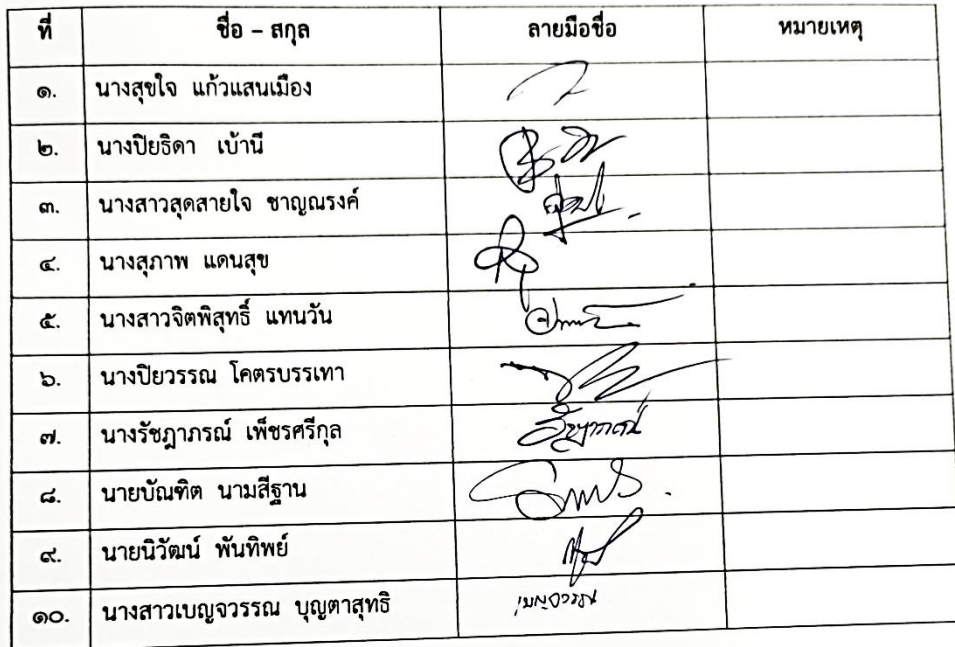 ที่ ชื่อ – สกุล ลายมือชื่อ หมายเหตุ
๑. นางสุขใจ แก้วแสนเมือง
๒. นางปิยธิดา เบ้านี
๓. นางสาวสุดสายใจ ชาญณรงค์
๔. นางสุภาพ แดนสุข
๕. นางสาวจิตพิสุทธิ์ แทนวัน
๖. นางปิยวรรณ โคตรบรรเทา
๗. นางรัชฎาภรณ์ เพ็ชรศรีกุล
๘. นายบัณฑิต นามสีฐาน
๙. นายนิวัฒน์ พันทิพย์
๑๐. นางสาวเบญจวรรณ บุญตาสุทธิ เบญจวรรณ